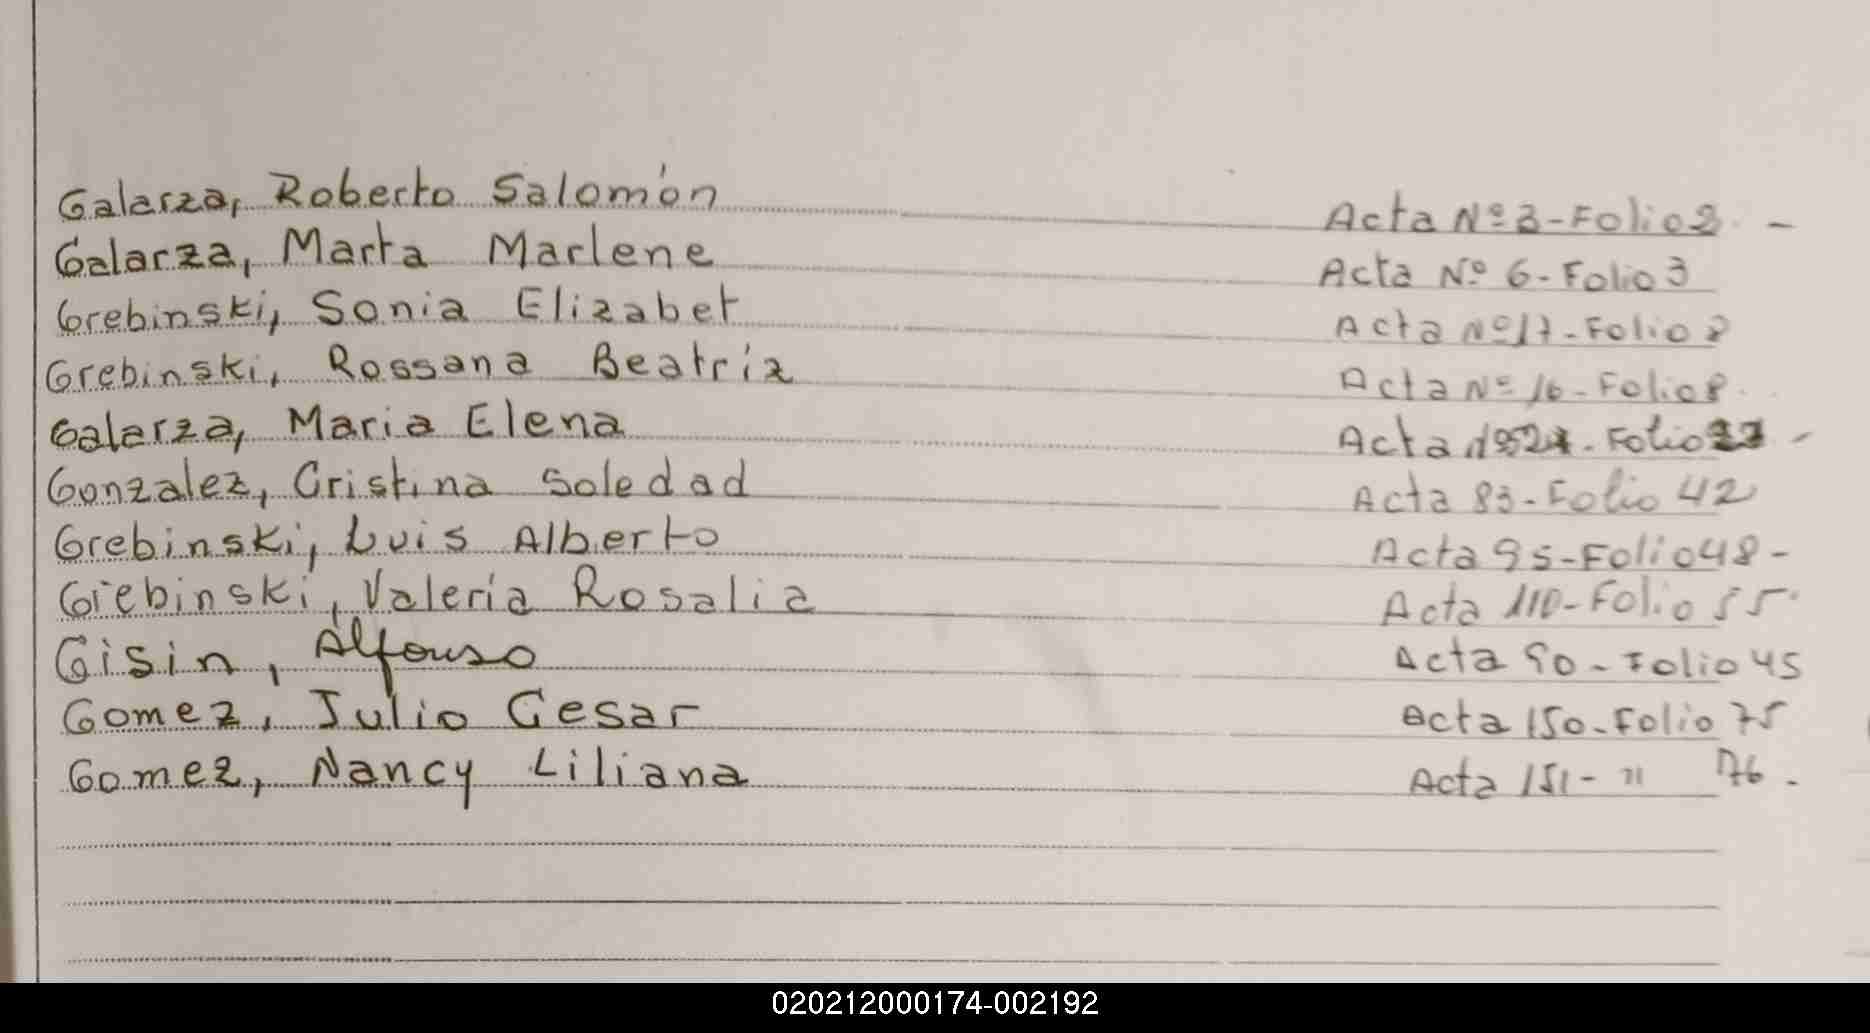 Galarza, Roberto Salomón Acta Nº 3-Folio 2 -
Galarza, Marta Marlene Acta Nº 6-Folio 3
Grebinski, Sonia Elizabet Acta Nº 17-Folio
Grebinski, Rossana Beatríz Acta Nº 16-Folio 8.
Galarza, Maria Elena Acta Folio -
Gonzalez, Cristina Soledad Acta 83-Folio 42
Grebinski, Luis Alberto Acta 95-Folio 48-
Grebinski, Valería Rosalia Acta 110-Folio 55
Gisin, Alfonso Acta 90-Folio 45
Gomez, Julio Cesar Acta 150-Folio 75
Gomez, Nancy Liliana Acta 151- " 76.
020212000174-002192